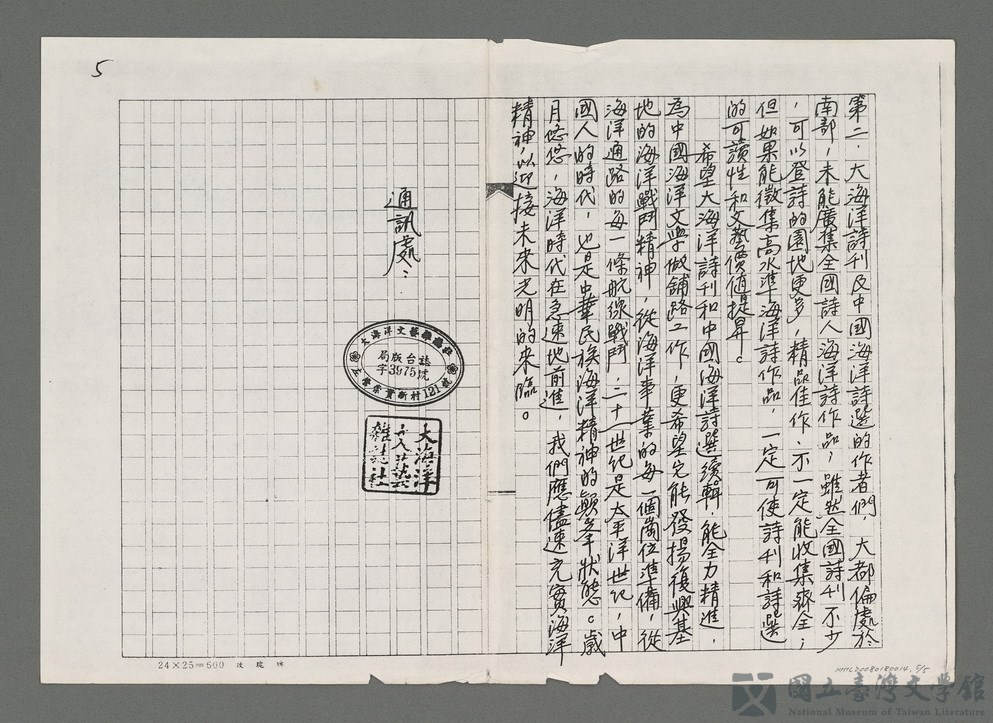 5
第二、大海洋詩刊及中國海洋詩選的作者們，大都偏處於
南部，未能廣集全國詩人海洋詩作品，雖然全國詩刊不少
，可以登詩的園地更多，精品佳作、不一定能收集齊全；
但如果能徵集高水準海洋詩作品，一定可使詩刊和詩選
的可讀性和文藝價值提昇。
希望大海洋詩刊和中國海洋詩選續輯，能全力精進，
為中國海洋文學做舖路工作，更希望它能發揚復興基
地的海洋戰鬥精神，從海洋事業的每一個崗位準備，從
海洋通路的每一條航線戰鬥，二十一世紀是太平洋世紀，中
國人的時代，也是中華民族海洋精神的顛峯狀態。歲
月悠悠，海洋時代在急速地前進，我們應儘速充實海洋
精神，以迎接未來光明的來臨。
通訊處：
大海洋文藝雜誌社
局版台誌
字3975號
新村121號
大海洋
文藝
雜誌社
24×25=600
NMTL20080180014, 5/5
國立臺灣文學館
National Museum of Taiwan Literature